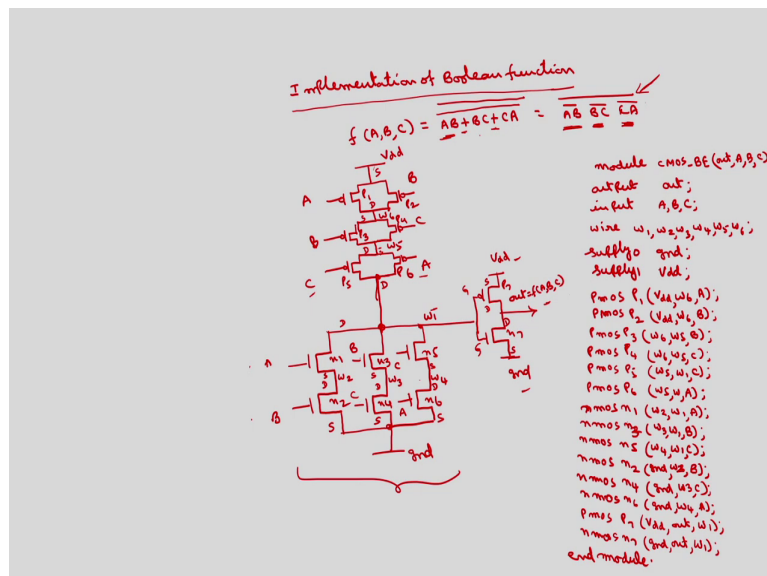 Implementation of Boolean function
f (A,B,C) = AB+BC+CA = AB BC CA
Vdd
S
A P1 P2 B
D
S W6
B P3 P4 C
D S W5
C P5 P6 A
D
D W1
A n1 B n3 C n5
S W2 S W3 S W4
D D D
B n2 C n4 A n6
S S S
gnd
Vdd
S
G P7
D out=f(A,B,C)
D
G n7
S
gnd
module CMOS_BE(out,A,B,C)
output out;
input A,B,C;
wire w1,w2,w3,w4,w5,w6;
supply0 gnd;
supply1 Vdd;
Pmos P1 (Vdd,w6,A);
Pmos P2 (Vdd,w6,B);
Pmos P3 (w6,w5,B);
Pmos P4 (w6,w5,C);
Pmos P5 (w5,w1,C);
Pmos P6 (w5,w,A);
nmos n1 (w2,w1,A);
nmos n3 (w3,w1,B);
nmos n5 (w4,w1,C);
nmos n2 (gnd,w2,B);
nmos n4 (gnd,w3,C);
nmos n6 (gnd,w4,A);
Pmos P7 (Vdd,out,w1);
nmos n7 (gnd,out,w1);
end module.